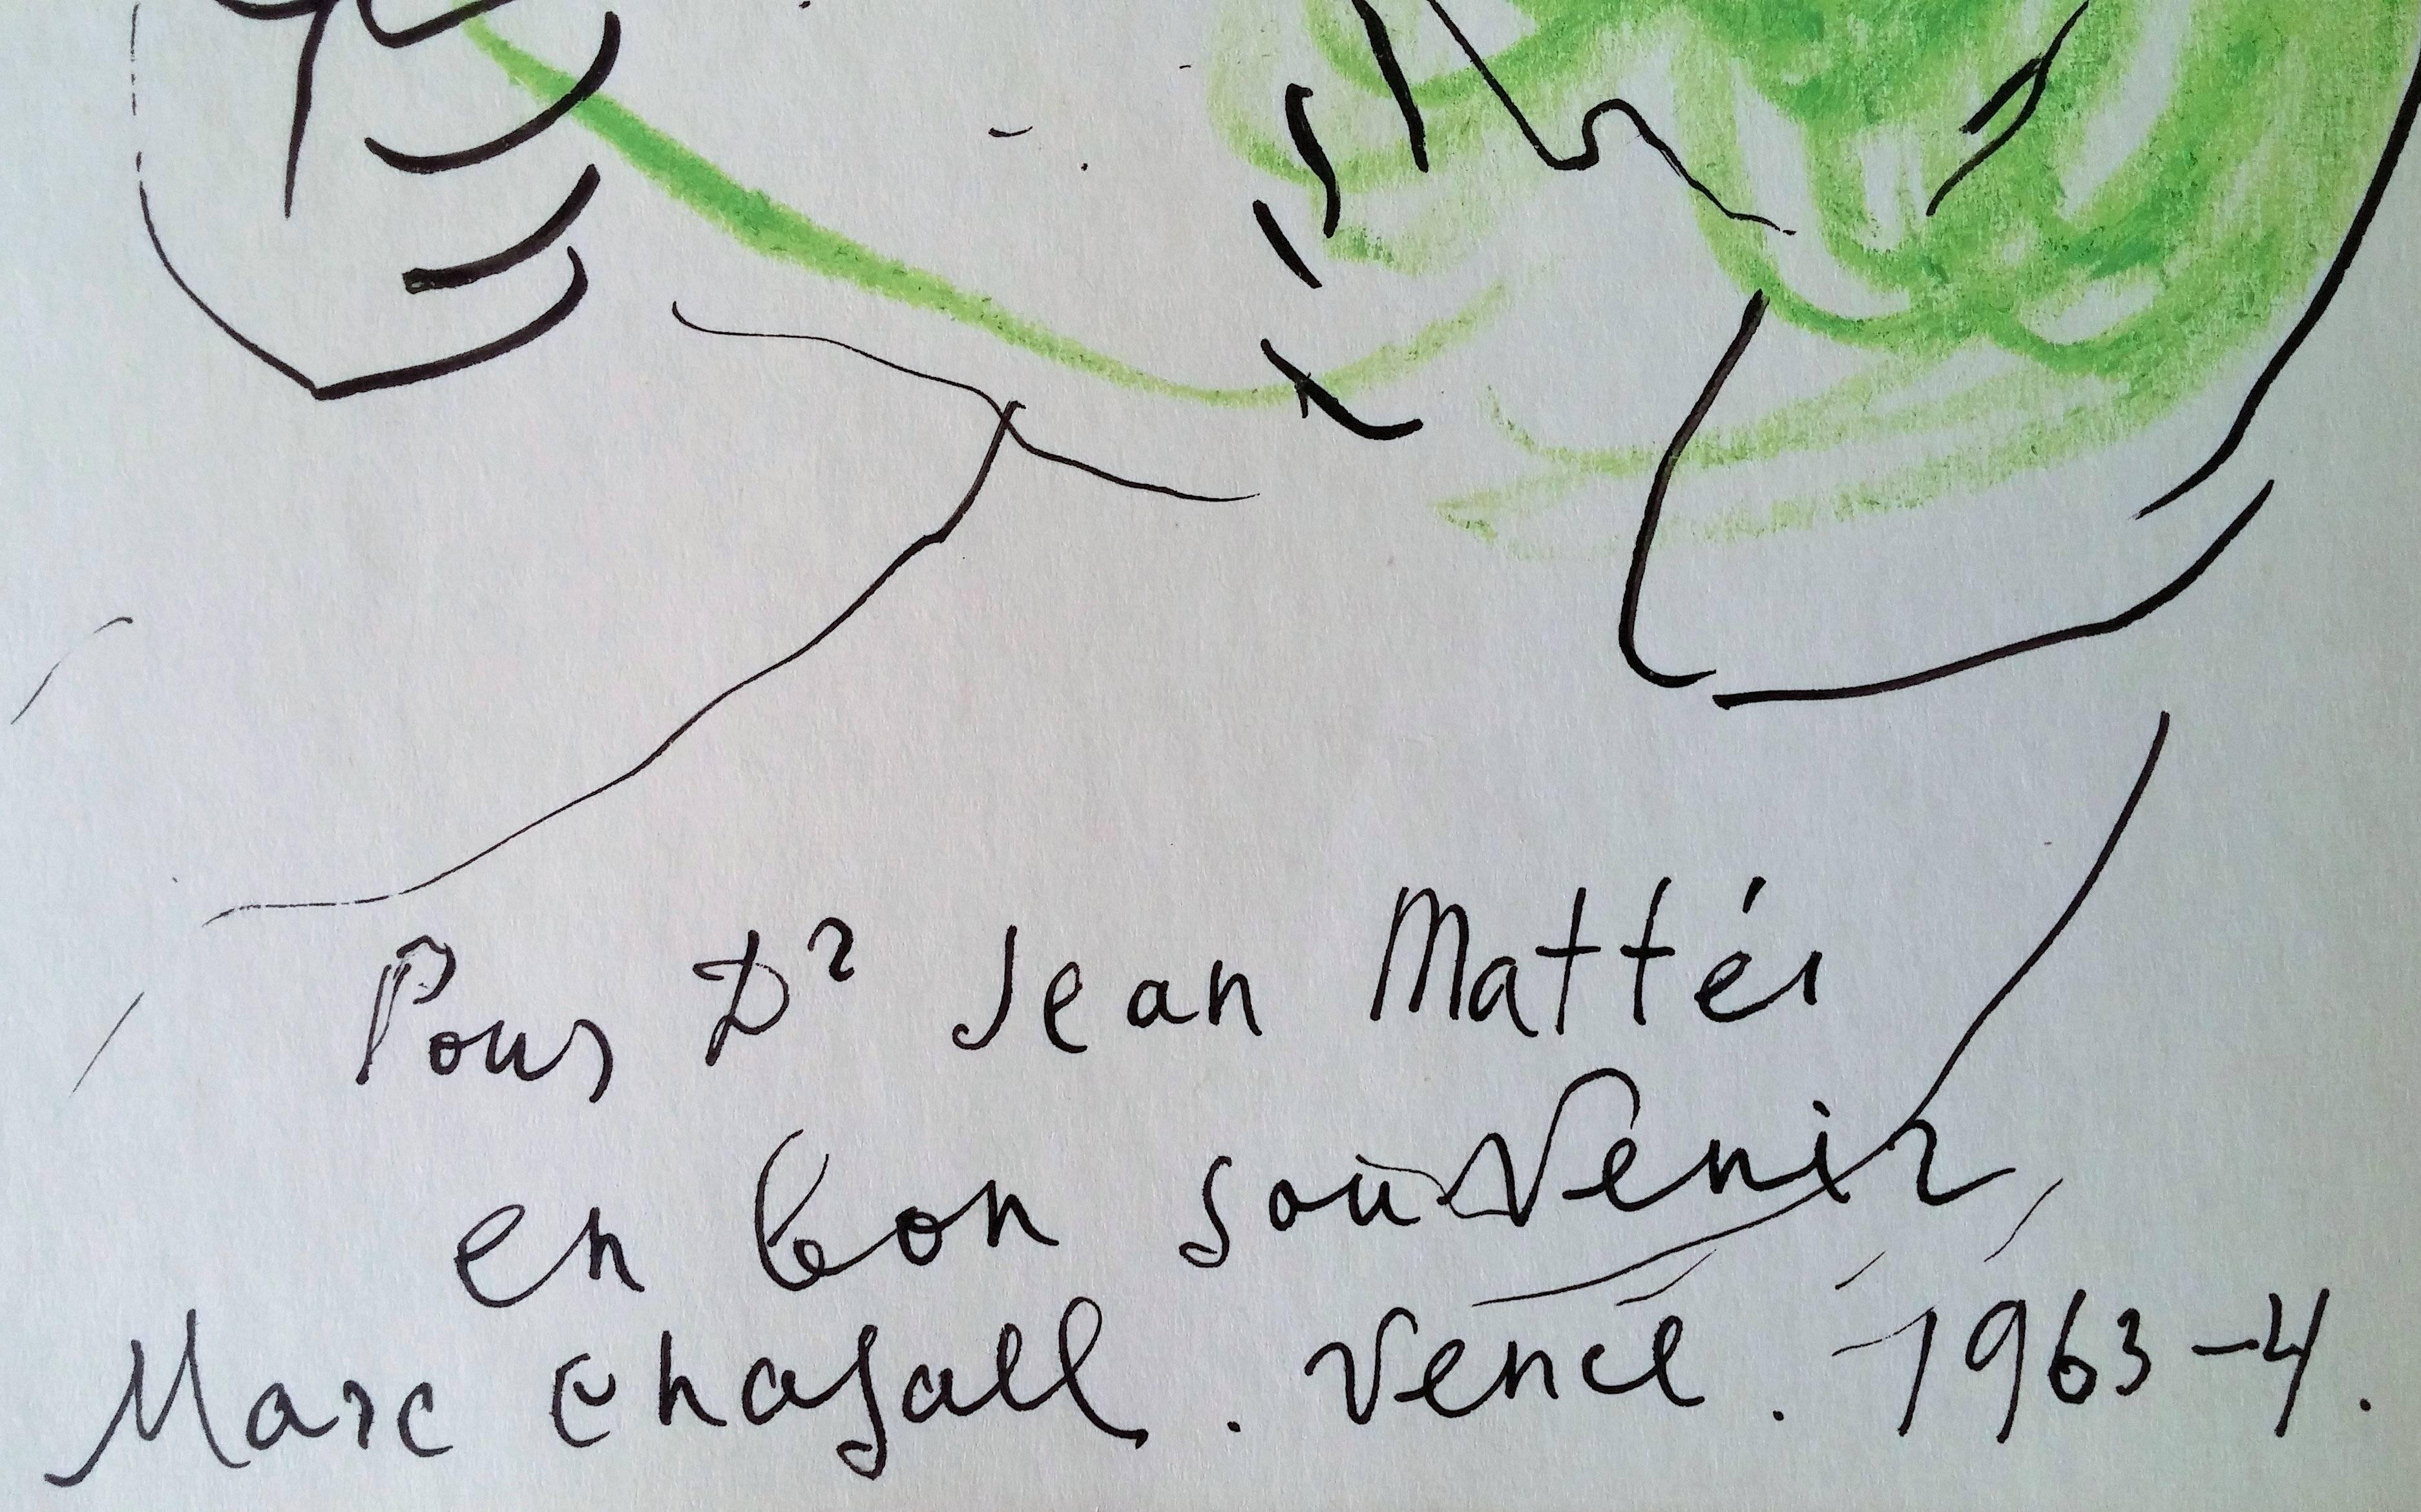 Pour Dr Jean Mattéi
en bon souvenir
Marc Chagall. Vence. 1963-4.